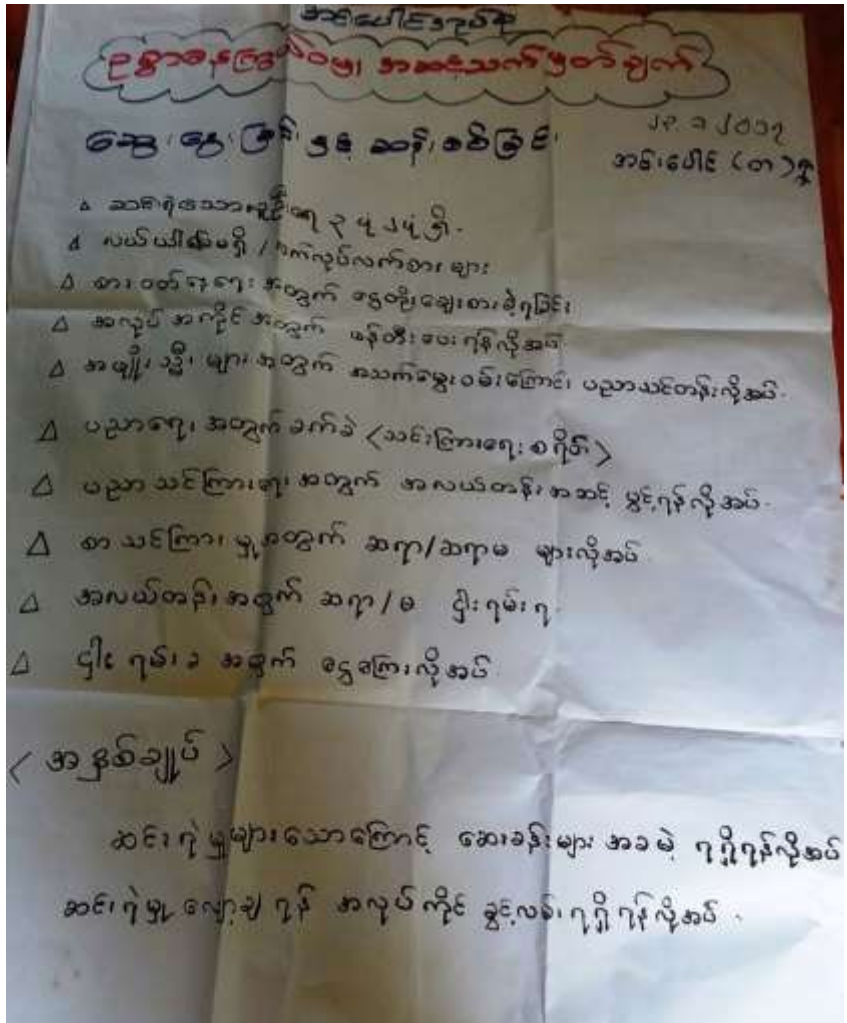 အင်းပေါင်အုပ်စု
ဥစ္စာဓနကြွယ်ဝမှု၊ အဆင့်သတ်မှတ်ချက်
ဆွေးနွေးခြင်းနှင့် ဆန်းစစ်ခြင်း
၂၃.၁.၂၀၁၇
အင်းပေါင် (တ) ရွာ
△ ဆင်းရဲသောလူဦးရေ ၃ ပုံ ၂ ပုံရှိ.
△ လယ်ယာမရှိ / လက်လုပ်လက်စား များ
△ စား ဝတ် နေရေး အတွက် ငွေတိုးချေးစားခဲ့ရခြင်း
△ အလုပ် အကိုင် အတွက် ဖန်တီးပေးရန်လိုအပ်
△ အမျိုးသ္မီးများအတွက် အသက်မွေးဝမ်းကြောင်း ပညာသင်တန်းလိုအပ်.
△ ပညာရေး အတွက် ခက်ခဲ <သင်ကြားရေး စရိတ်>
△ ပညာသင်ကြားရေး အတွက် အလယ်တန်း အဆင့် ဖွင့်ရန်လိုအပ်.
△ စာသင်ကြားမှုအတွက် ဆရာ/ဆရာမ များလိုအပ်
△ အလယ်တန်းအတွက် ဆရာ/မ ငှါးရမ်းရ.
△ ငှါးရမ်းခ အတွက် ငွေကြေးလိုအပ်
< အနှစ်ချုပ် >
ဆင်းရဲမှုများသောကြောင့် ဆေးခန်းများ အခမဲ့ ရရှိရန်လိုအပ်
ဆင်းရဲမှု လျော့ချရန် အလုပ်ကိုင် ခွင့်လမ်းရရှိရန်လိုအပ်.